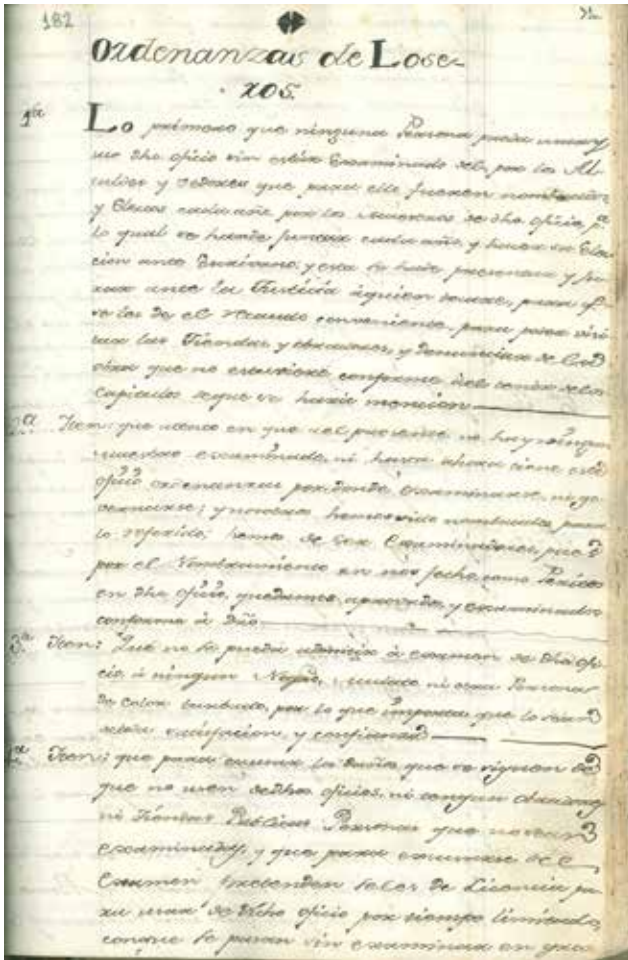 182
Ordenanzas de Lose-
ros.
1ra Lo primero que ninguna Persona pueda usar
dho oficio sin estar Examinado del, por los Al-
caldes y Vedores que para ello fueren nombrados
y Electos cada año por los Maestros de dho oficio, pa
lo qual se han de juntar cada año, y hacer la Elec-
cion ante Escrivano; y esta se ha de presentar y ju-
rar ante la Justicia à quien tocare, para q
se les de el recaudo conveniente, para poder visi-
tar las Tiendas, y obradores, y denunciar de la
obra que no estuviere conforme del tenor de los
Capitulos de que se hará mencion
2a Iten: que atento en que al presente no hay ningun
maestro examinado, ni hasta ahora tiene este
oficio ordenanzas por donde examinarse, ni go-
vernarse; y nosotros hemos sido nombrados para
lo referido; hemos de ser Examinadores, pues
por el Nombramiento en nos fecho, como Peritos
en dho oficio, quedamos aprovados, y examinados
conforme à dro
3a Iten: Que no se pueda admitir à examen de dho ofi-
cio à ningun Negro, Mulato ni otra Persona
de color turbado, por lo que importa que lo sean
de toda satisfacion, y confianza
4a Iten: que para escusar los daños que se siguen de
que no usen de dho oficio, ni tengan obradores,
ni Tiendas Publicas Personas que no sean
examinadas, y que para escusarse de el
Examen pretenden valerse de Licencia pa-
ra usar de dicho oficio por tiempo limitado,
conque se pasan sin examinar en gran